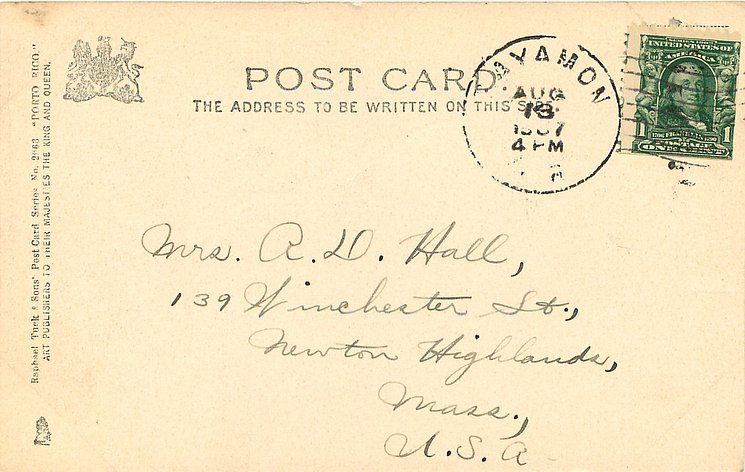 POST CARD.
THE ADDRESS TO BE WRITTEN ON THIS SIDE.
BAYAMON
AUG
13
1907
4 PM
SERIES 1902
UNITED STATES OF
AMERICA
1 1
1706 FRANKLIN 1790
POSTAGE
ONE CENT
Mrs. A. D. Hall,
139 Winchester St.,
Newton Highlands,
Mass.,
U.S.A
Raphael Tuck & Sons' Post Card Series No. 2963 "PORTO RICO."
ART PUBLISHERS TO THEIR MAJESTIES THE KING AND QUEEN.